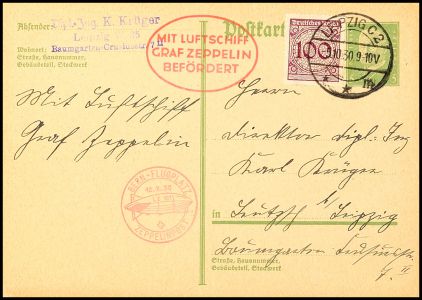 Absender: Dipl.-Ing. K. Krüger
Leipzig
Wohnort: Baumgarten-Crusiusstr. 7 II
Straße, Hausnummer,
Gebäudeteil, Stockwerk
MIT LUFTSCHIFF
GRAF ZEPPELIN
BEFÖRDERT
Postkarte
Deutsches Reich
100
LEIPZIG C2
.10.30.9-10V
Mit Luftschiff
Graf Zeppelin
BERN-FLUGPLATZ
ZEPPELINPOST
Herrn
Direktor dipl. Ing
Karl Krüger
in Leutzsch b/ Leipzig
Baumgarten
Straße, Hausnummer,
Gebäudeteil, Stockwerk